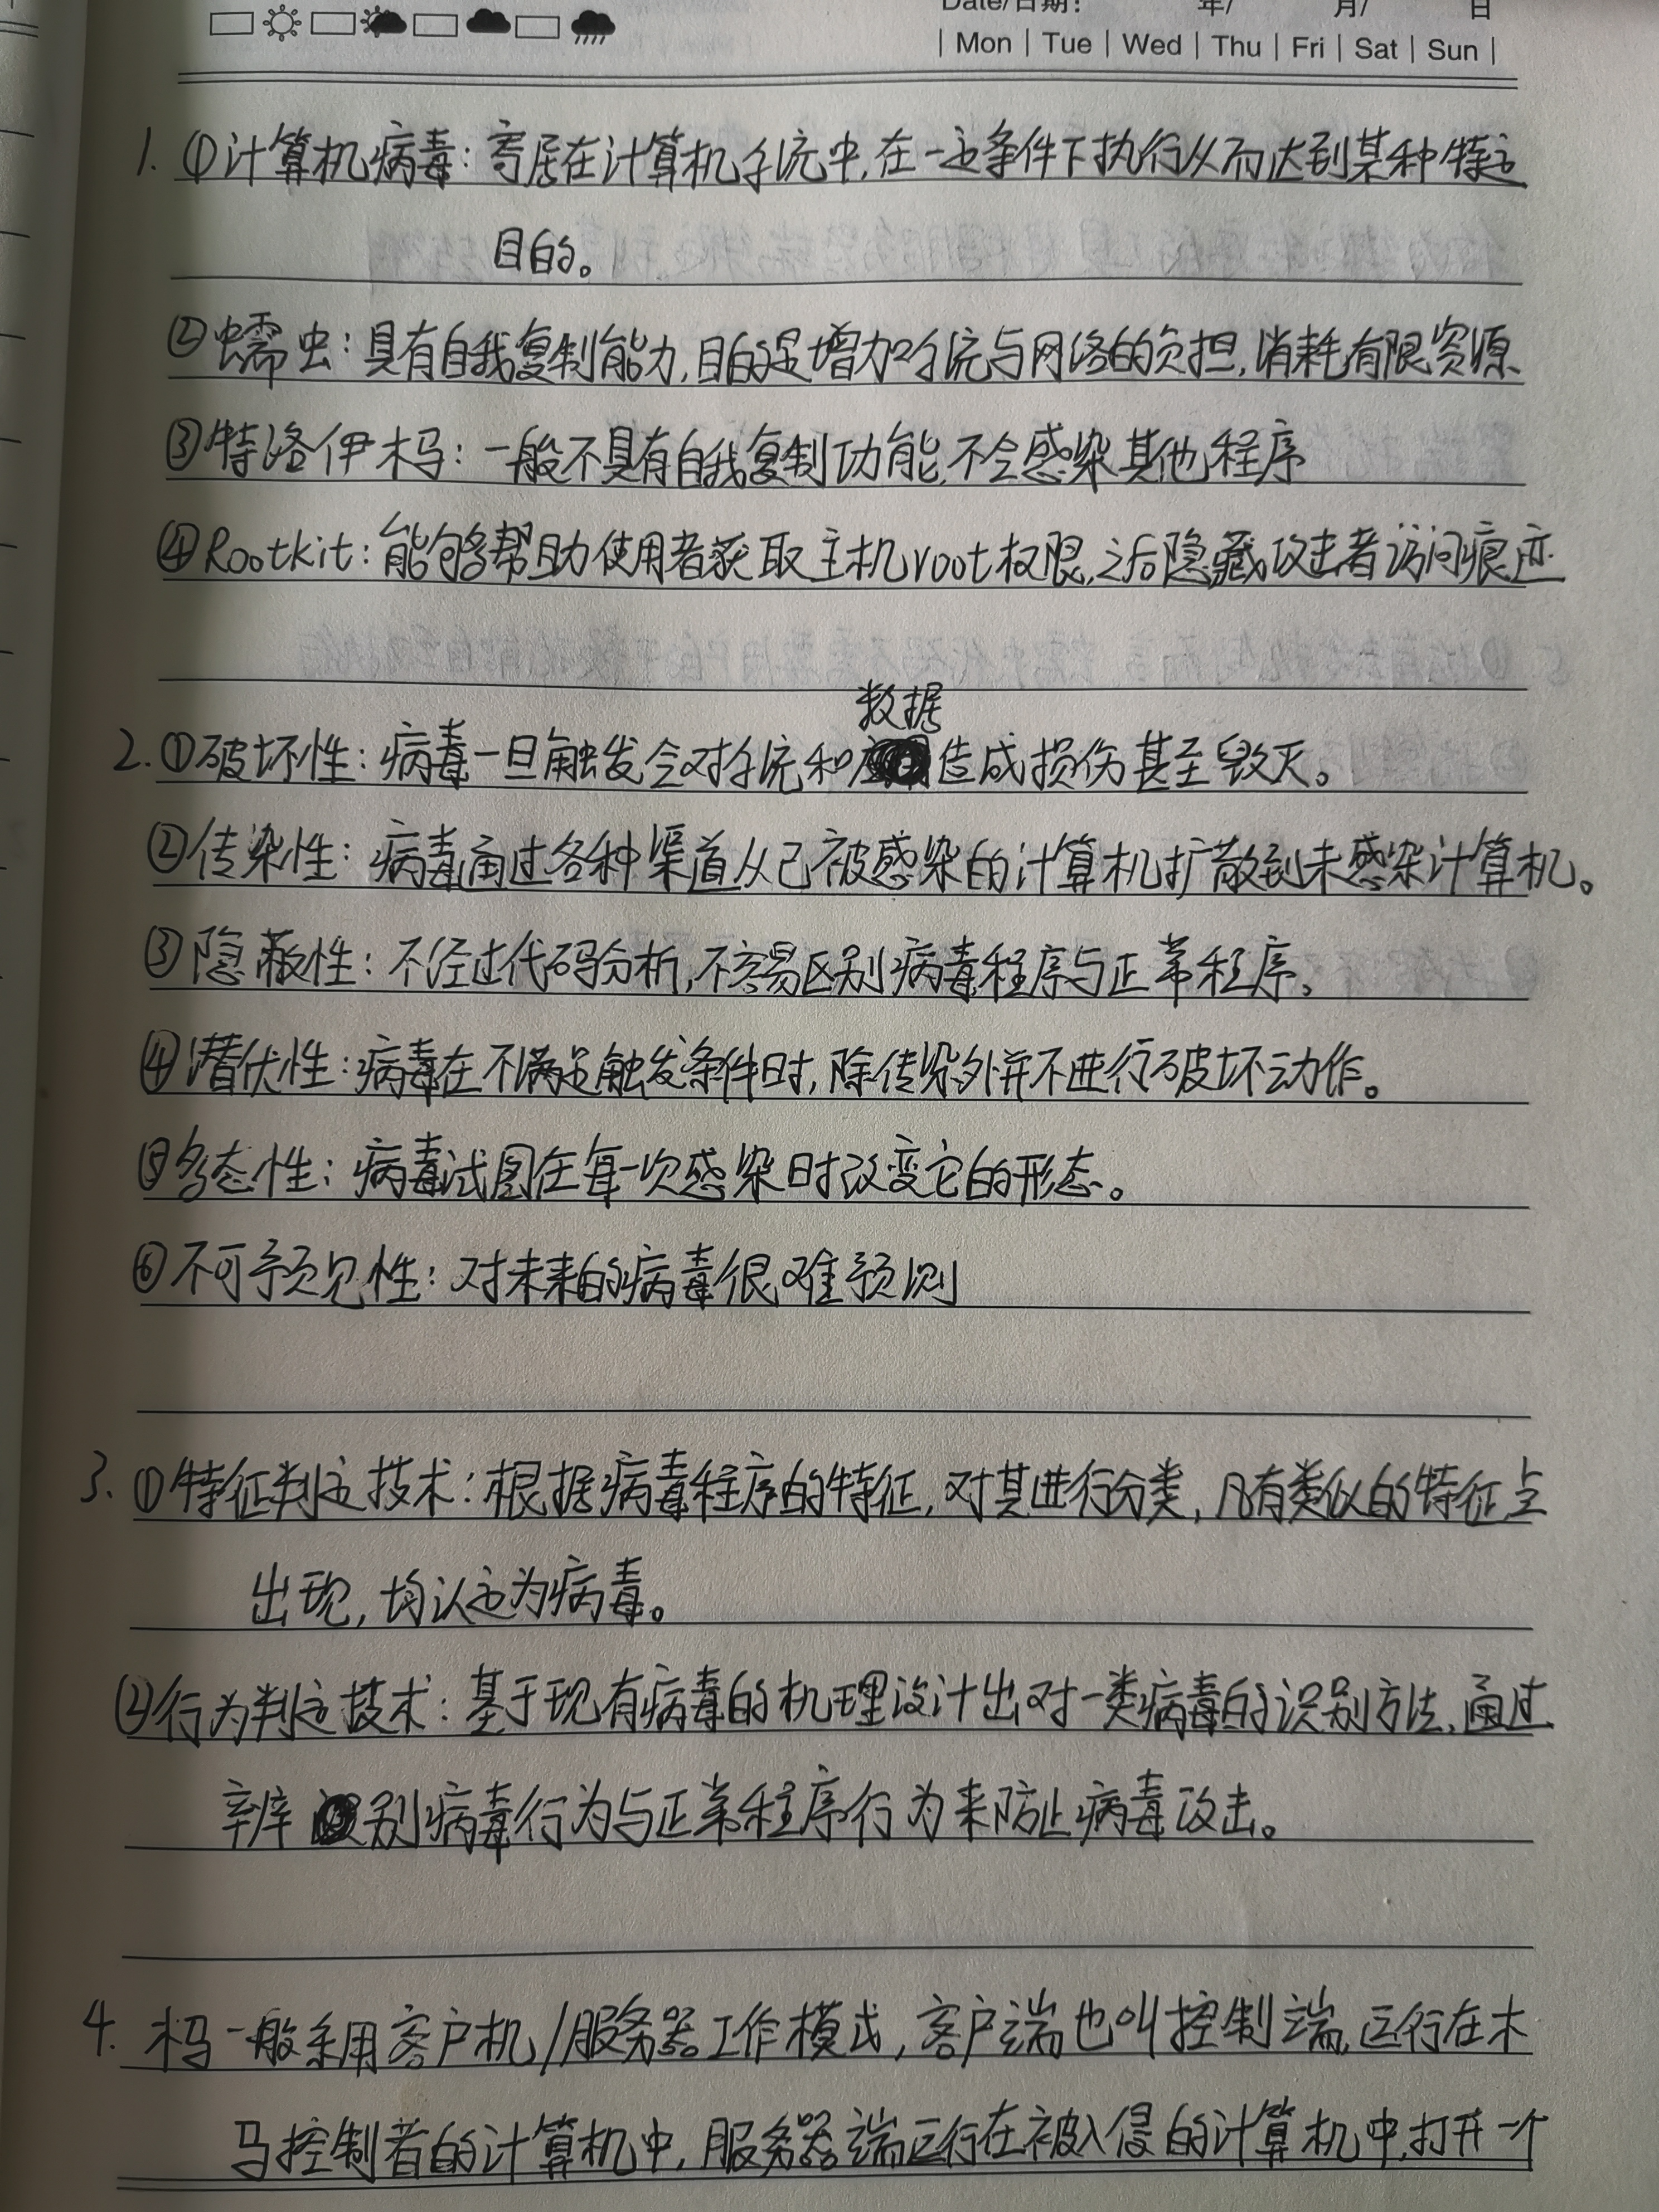 Date/日期: 年/ 月/ 日
| Mon | Tue | Wed | Thu | Fri | Sat | Sun |
1. ①计算机病毒：寄居在计算机系统中,在一定条件下执行从而达到某种特定
目的。
②蠕虫：具有自我复制能力,目的是增加系统与网络的负担,消耗有限资源.
③特洛伊木马：一般不具有自我复制功能,不会感染其他程序
④Rootkit：能够帮助使用者获取主机root权限,之后隐藏攻击者访问痕迹
数据
2. ①破坏性：病毒一旦触发会对系统和造成损伤甚至毁灭。
②传染性：病毒通过各种渠道从已被感染的计算机扩散到未感染计算机。
③隐蔽性：不经过代码分析,不容易区别病毒程序与正常程序。
④潜伏性：病毒在不满足触发条件时,除传染外并不进行破坏动作。
⑤多态性：病毒试图在每一次感染时改变它的形态。
⑥不可预见性：对未来的病毒很难预测
3. ①特征判定技术：根据病毒程序的特征,对其进行分类,凡有类似的特征点
出现,均认定为病毒。
②行为判定技术：基于现有病毒的机理设计出对一类病毒的识别方法,通过
辨别病毒行为与正常程序行为来防止病毒攻击。
4. 木马一般采用客户机/服务器工作模式,客户端也叫控制端,运行在木
马控制者的计算机中,服务器端运行在被入侵的计算机中,打开一个